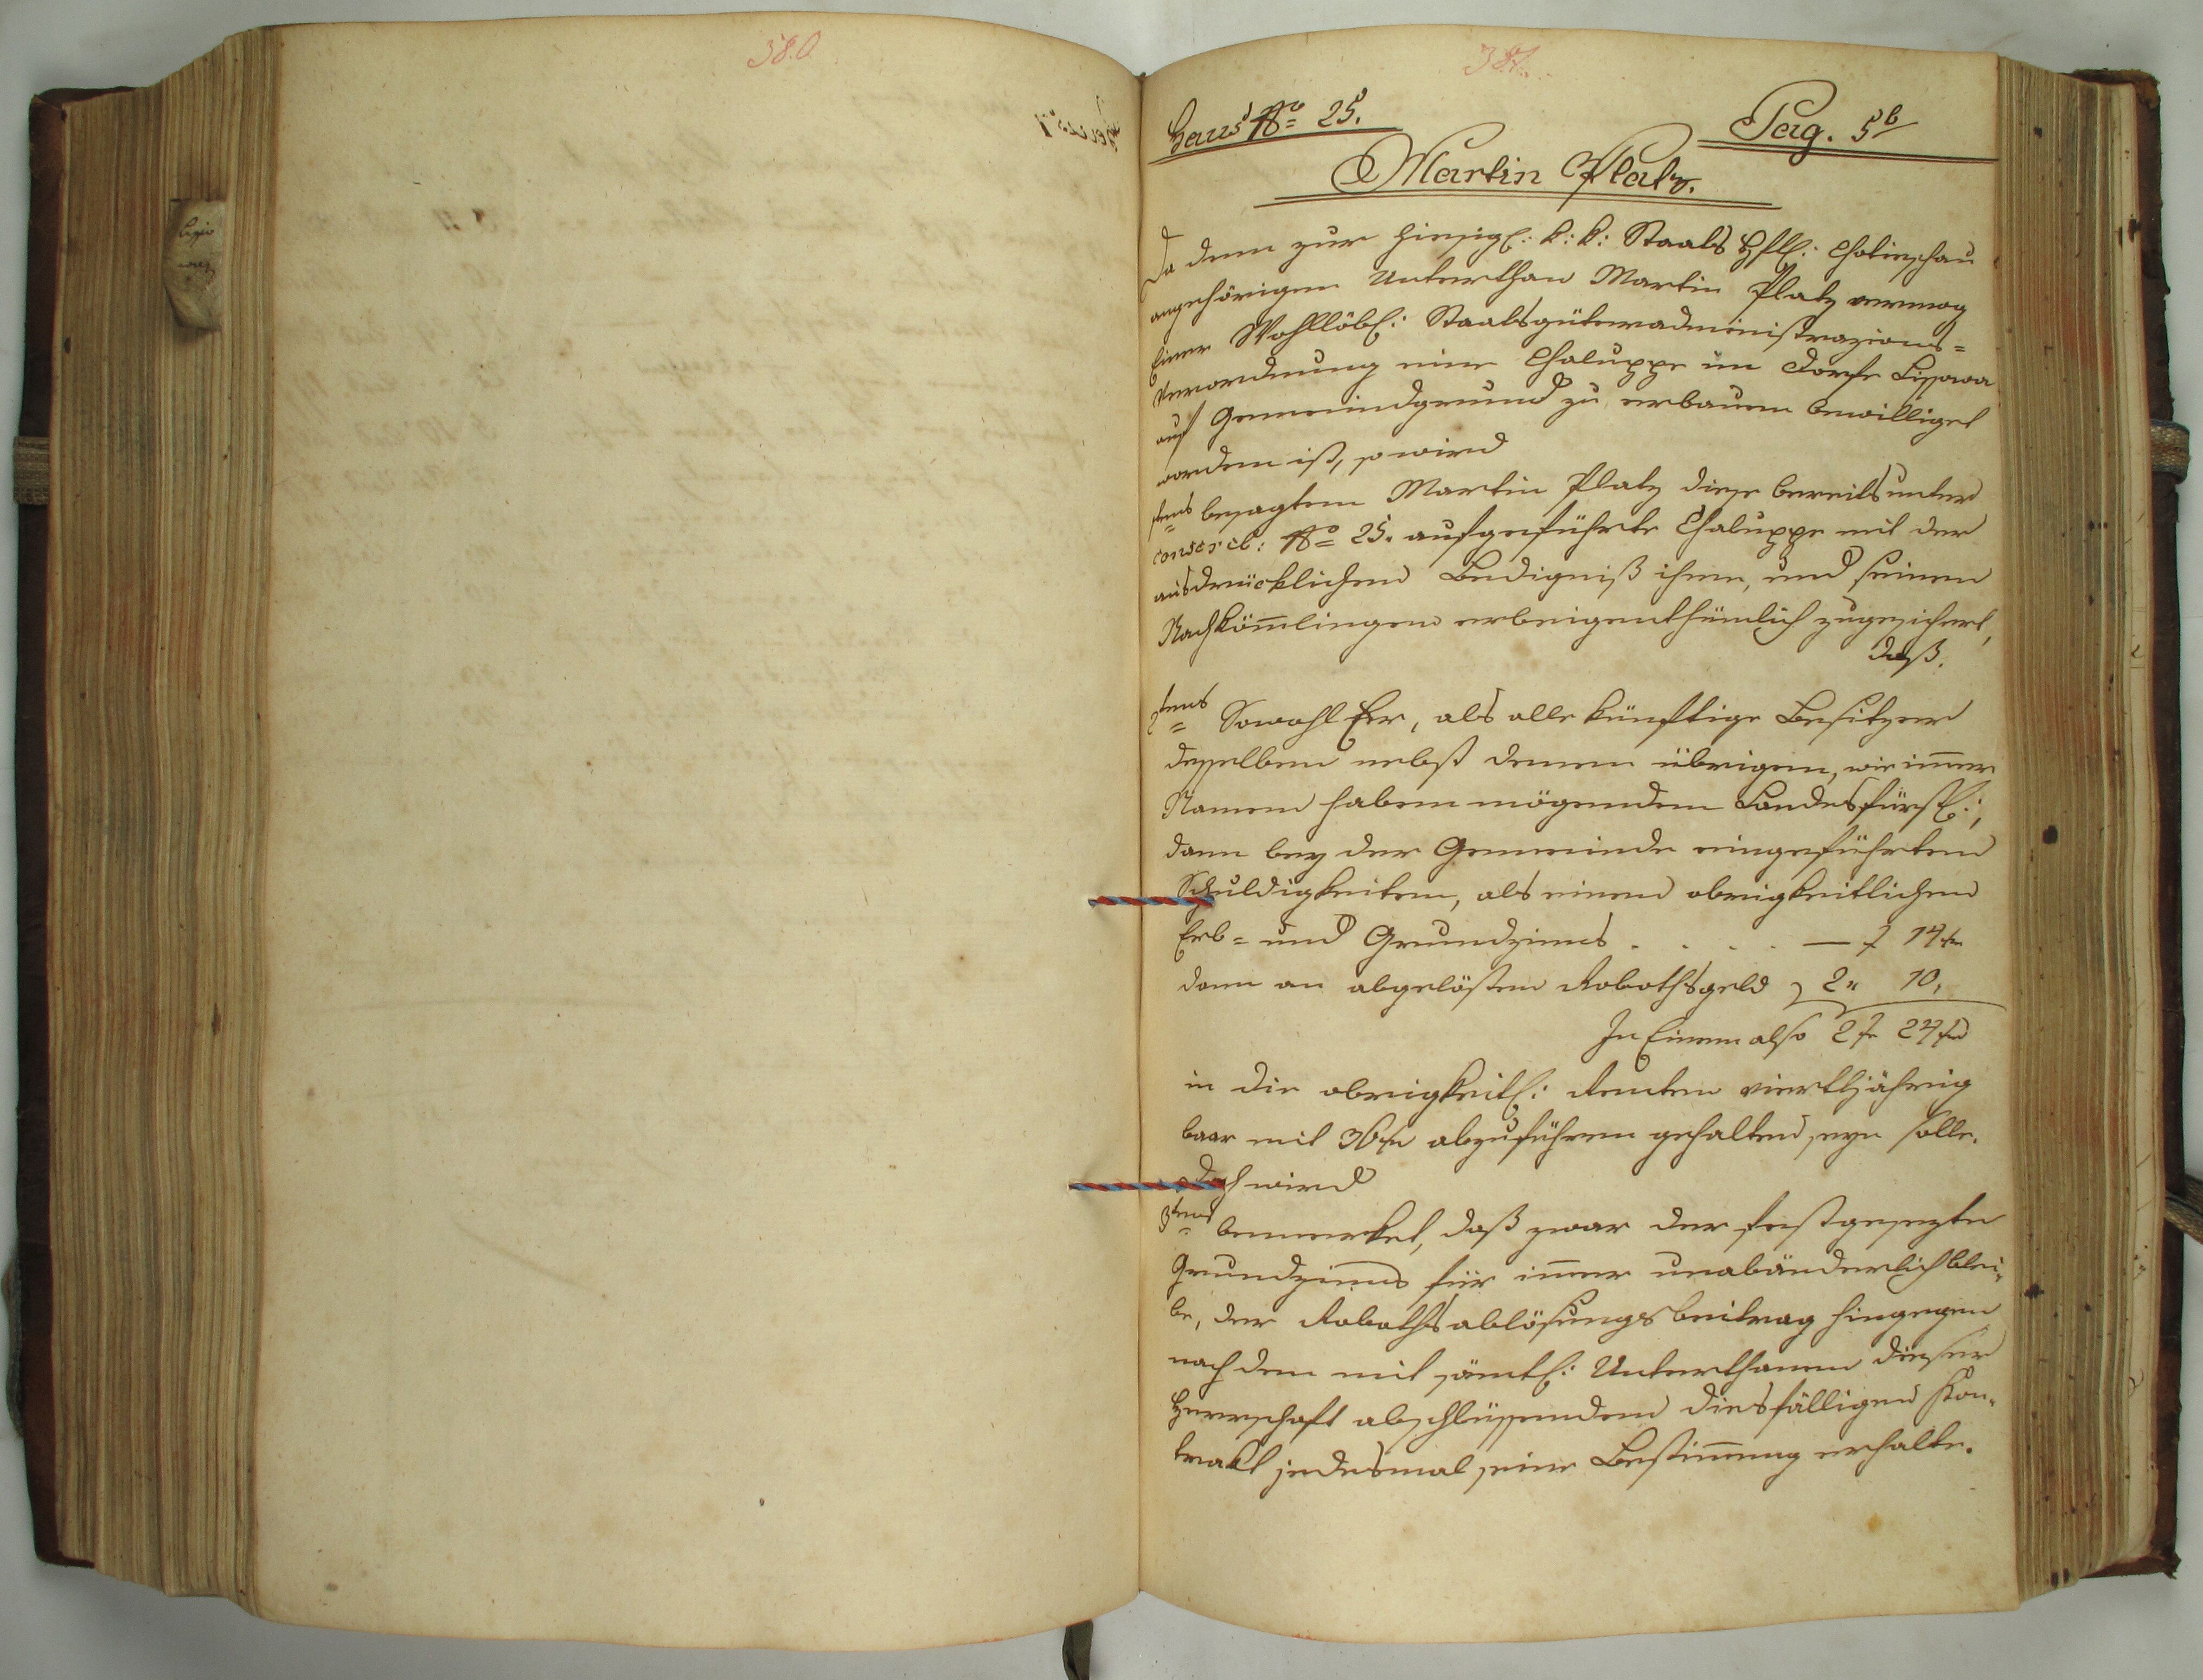 380
381.
Haus No 25.
Pag. 5b
Martin Platz.
Da dem zur hiesigl: k: k: Staats Hftl: Chotieschau
angehörigen Unterthan Martin Platz vermög
Einer Wohllöbl: Staatsgüteradministrazions=
Verordnung eine Chaluppe im Dorfe Lissowa
auf Gemeindgrund zu erbauen bewilliget
worden ist, so wird
1tens besagtem Martin Platz diese bereits unter
conscrib: No 25. aufgeführte Chaluppe mit der
ausdrücklichen Bedigniß ihme, und seinen
Nachkömlingen erbeigenthümlich zugesichert,
daß.
2tens Sowohl Er, als alle künftige Besitzer
desselben nebst denen übrigen, wie immer
Namen haben mögenden Landesfürstl:,
dann bey der Gemeinde eingeführten
Schuldigkeiten, als einen obrigkeitlichen
Erb= und Grundzinns . . . . — f 14 kr
dann an abgelösten Robothsgeld 2 " 10,
In Einem also 2 f 24 kr
in die obrigkeitl: Renten vierteljährig
baar mit 36 kr abzuführen gehalten seyn solle.
Doch wird
3tens bemerket, daß zwar der festgesezte
Grundzinns für immer unabänderlich blei-
be, der Robothsablösungsbeitrag hingegen
nach dem mit sämtl: Unterthanen dieser
Herrschaft abschlüssenden diesfälligen Kon-
trakt jedesmal seine Bestimmung erhalte.